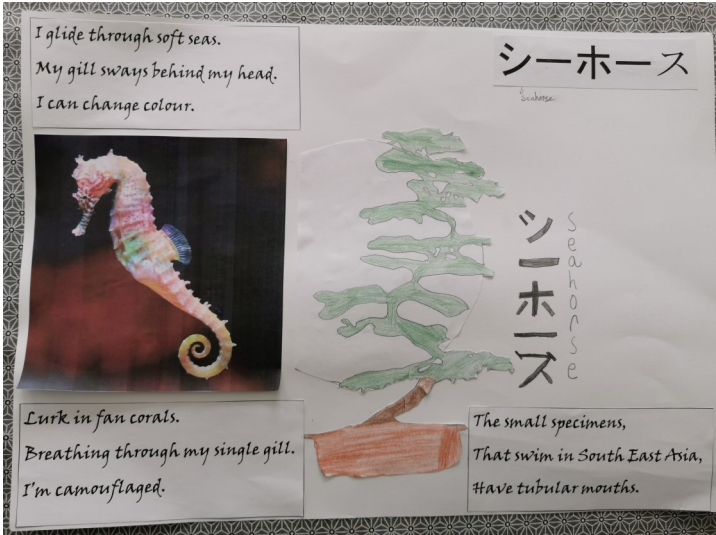 I glide through soft seas.
My gill sways behind my head.
I can change colour.
シーホース
Seahorse
シーホース
seahorse
Lurk in fan corals.
Breathing through my single gill.
I'm camouflaged.
The small specimens,
That swim in South East Asia,
Have tubular mouths.